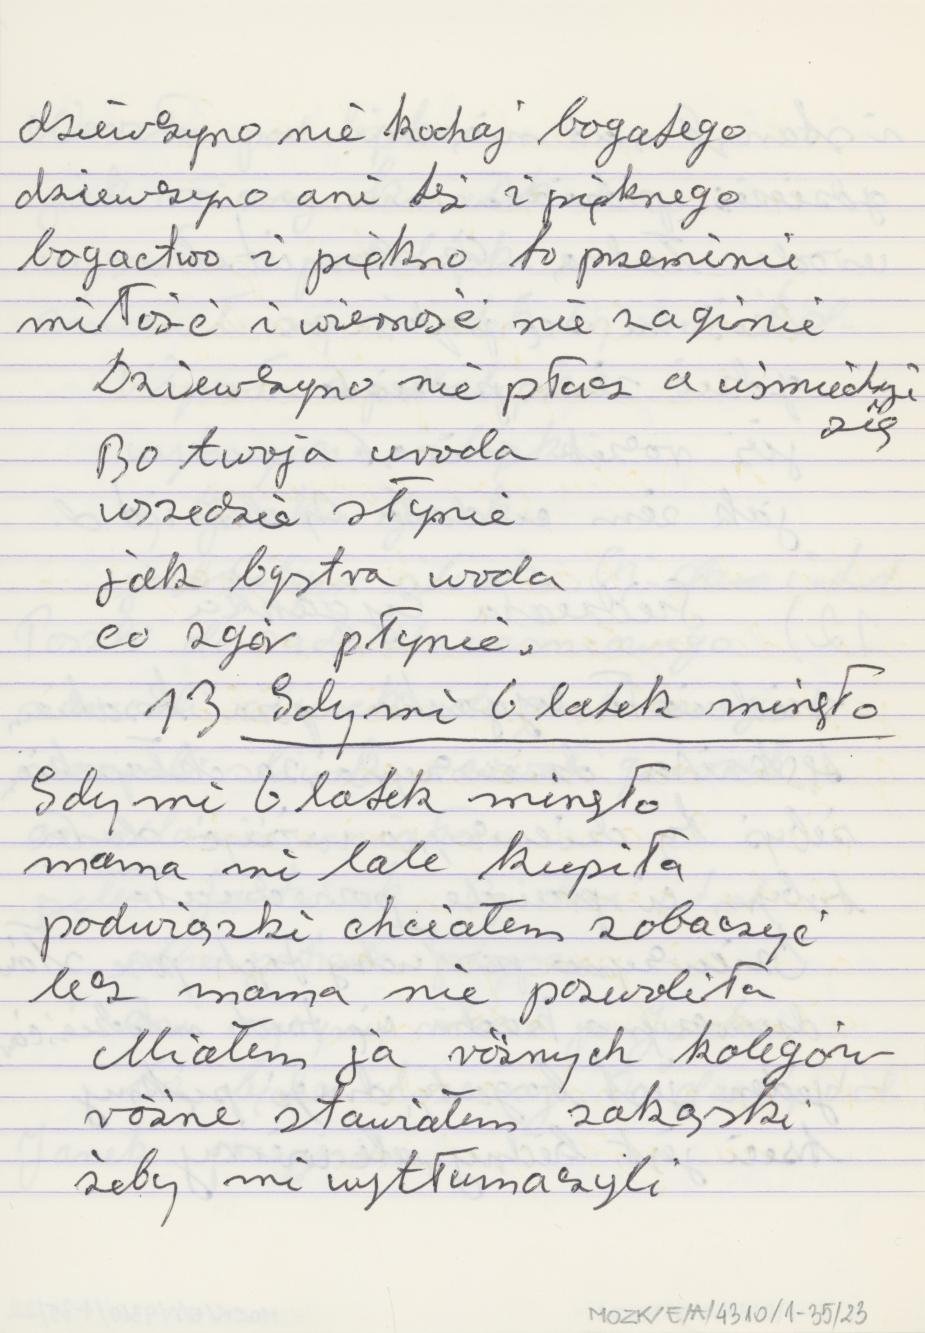 dziewczyno nie kochaj bogatego
dziewczyno ani też i pięknego
bogactwo i piękno to przeminie
miłość i wierność nie zaginie
Dziewczyno nie płacz a uśmiechaj
się
Bo twoja uroda
wszedzie słynie
jak bystra woda
co zgór płynie.
13 Gdy mi 6 latek minęło
Gdy mi 6 latek minęło
mama mi lale kupiła
podwiązki chciałem zobaczyć
lecz mama nie pozwoliła
Miałem ja różnych kolegów
różne stawiałem zakąski
żeby mi wytłumaczyli
MOZK/E/A/4310/1-35/23